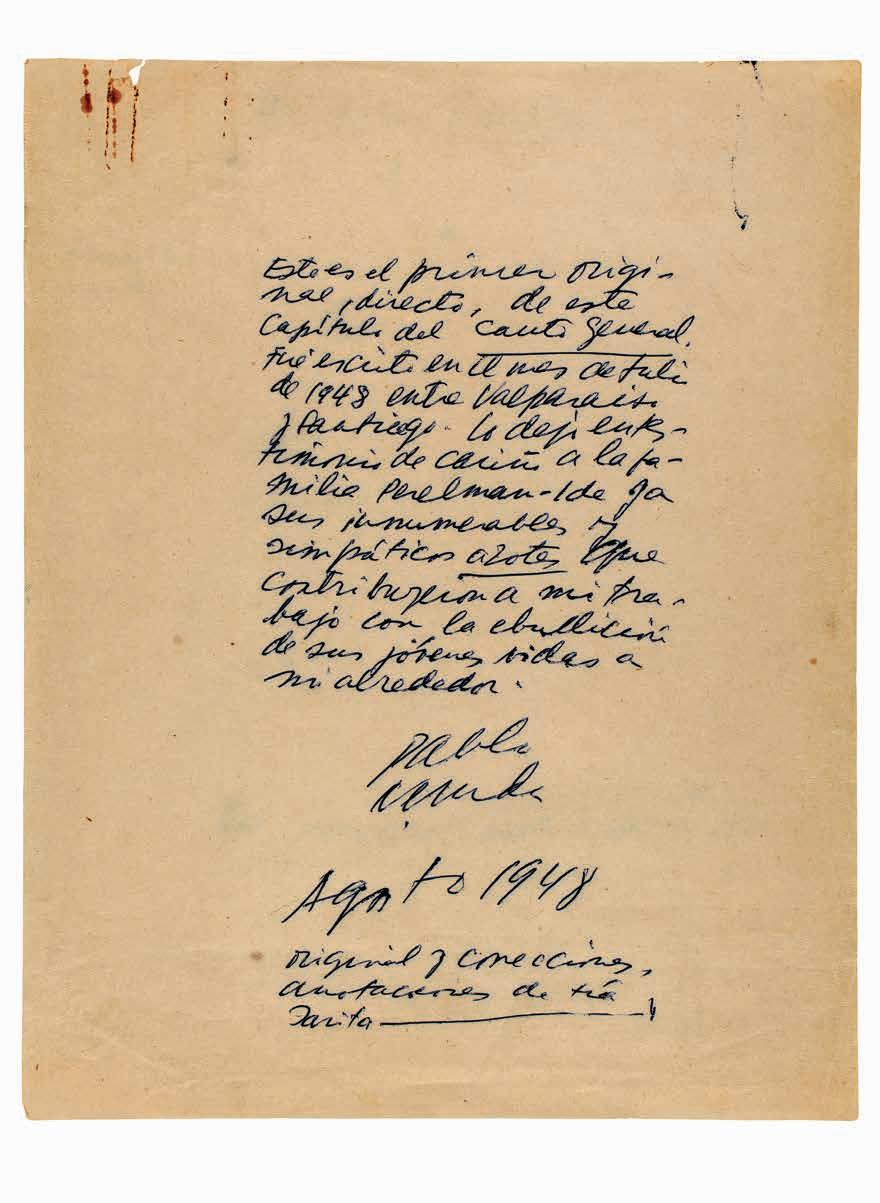 Este es el primer origi-
nal, directo, de este
Capítulo del Canto General.
Fué escrito en el mes de Julio
de 1948 entre Valparaíso
y Santiago. Lo dejo en tes-
timonio de cariño a la fa-
milia Perelman-Ide y a
sus innumerables y
simpáticos azotes que
contribuyeron a mi tra-
bajo con la ebullición
de sus jóvenes vidas a
mi alrededor.
Pablo
Neruda
Agosto 1948
original y correcciones,
anotaciones de tía